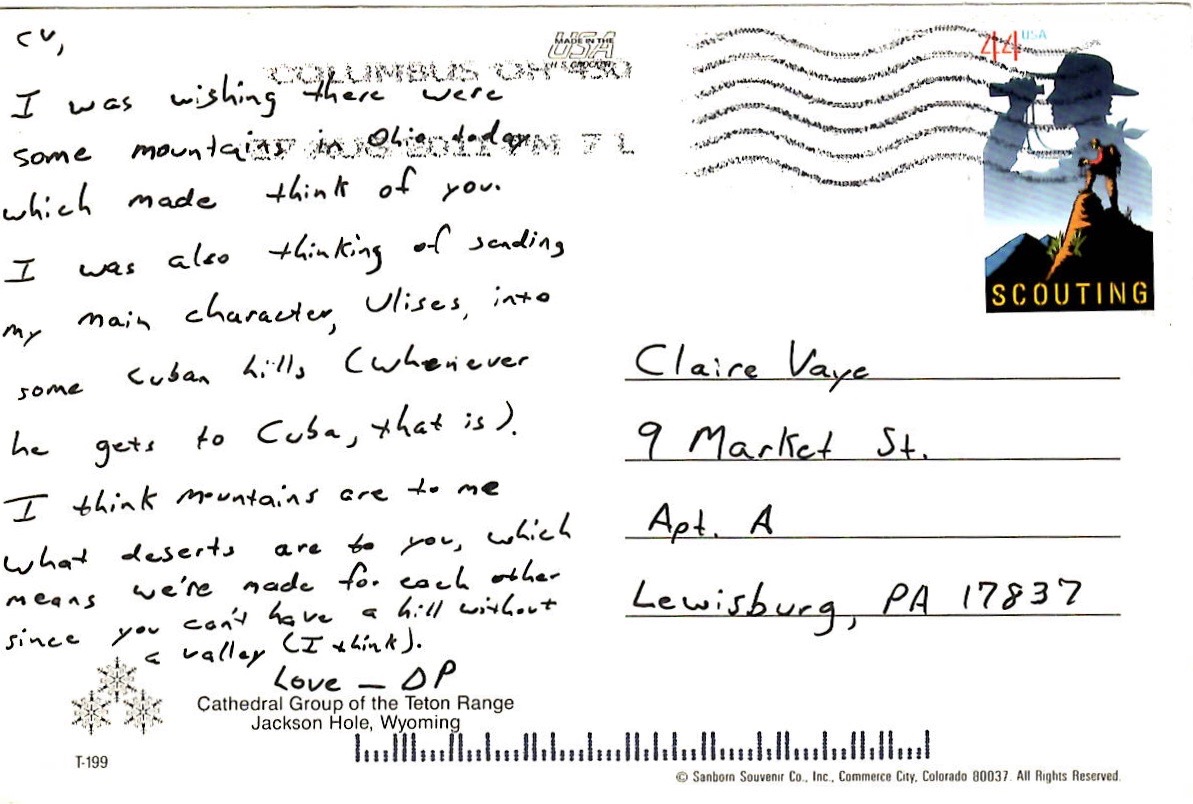 CV,
I was wishing there were
some mountains in Ohio today
which made think of you.
I was also thinking of sending
my main character, Ulises, into
some Cuban hills (whenever
he gets to Cuba, that is).
I think mountains are to me
what deserts are to you, which
means we're made for each other
since you can't have a hill without
a valley (I think).
Love — DP
Cathedral Group of the Teton Range
Jackson Hole, Wyoming
T-199
MADE IN THE
USA
COLUMBUS OH 430
27 AUG 2011 PM 7 L
44 USA
SCOUTING
Claire Vaye
9 Market St.
Apt. A
Lewisburg, PA 17837
© Sanborn Souvenir Co., Inc., Commerce City, Colorado 80037. All Rights Reserved.